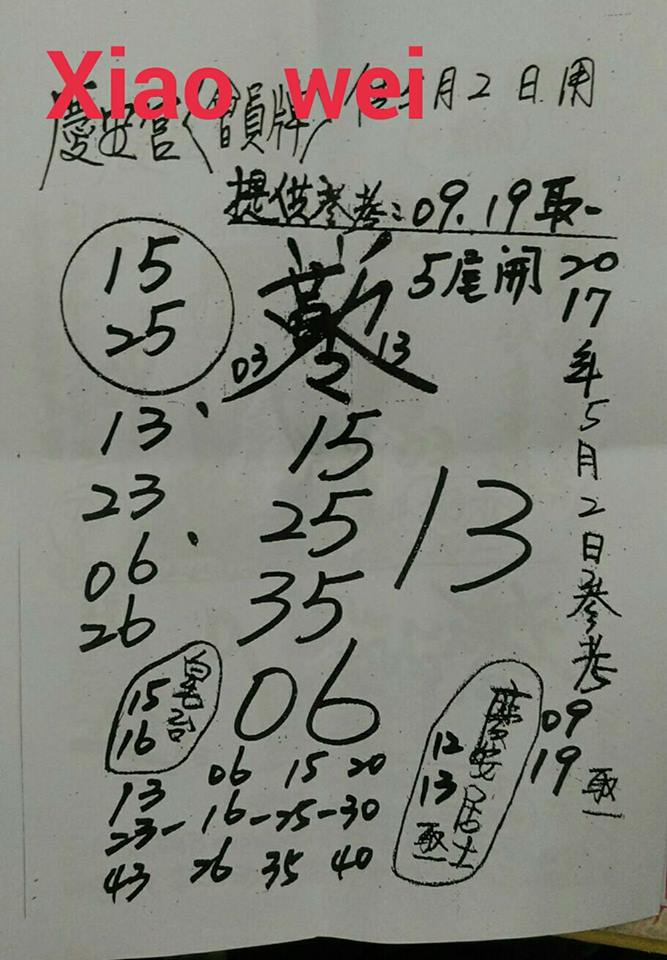 Xiao wei
慶安宮(會員牌)  5月2日用
提供參考:09.19取一
15
25
03
13
5尾開
2017年5月2日參考
09
19取一
13
23
06
26
15
25
35
06
13
15
16
慶安居士
12
13
取一
06 15 20
13
23-16-25-30
43 26 35 40